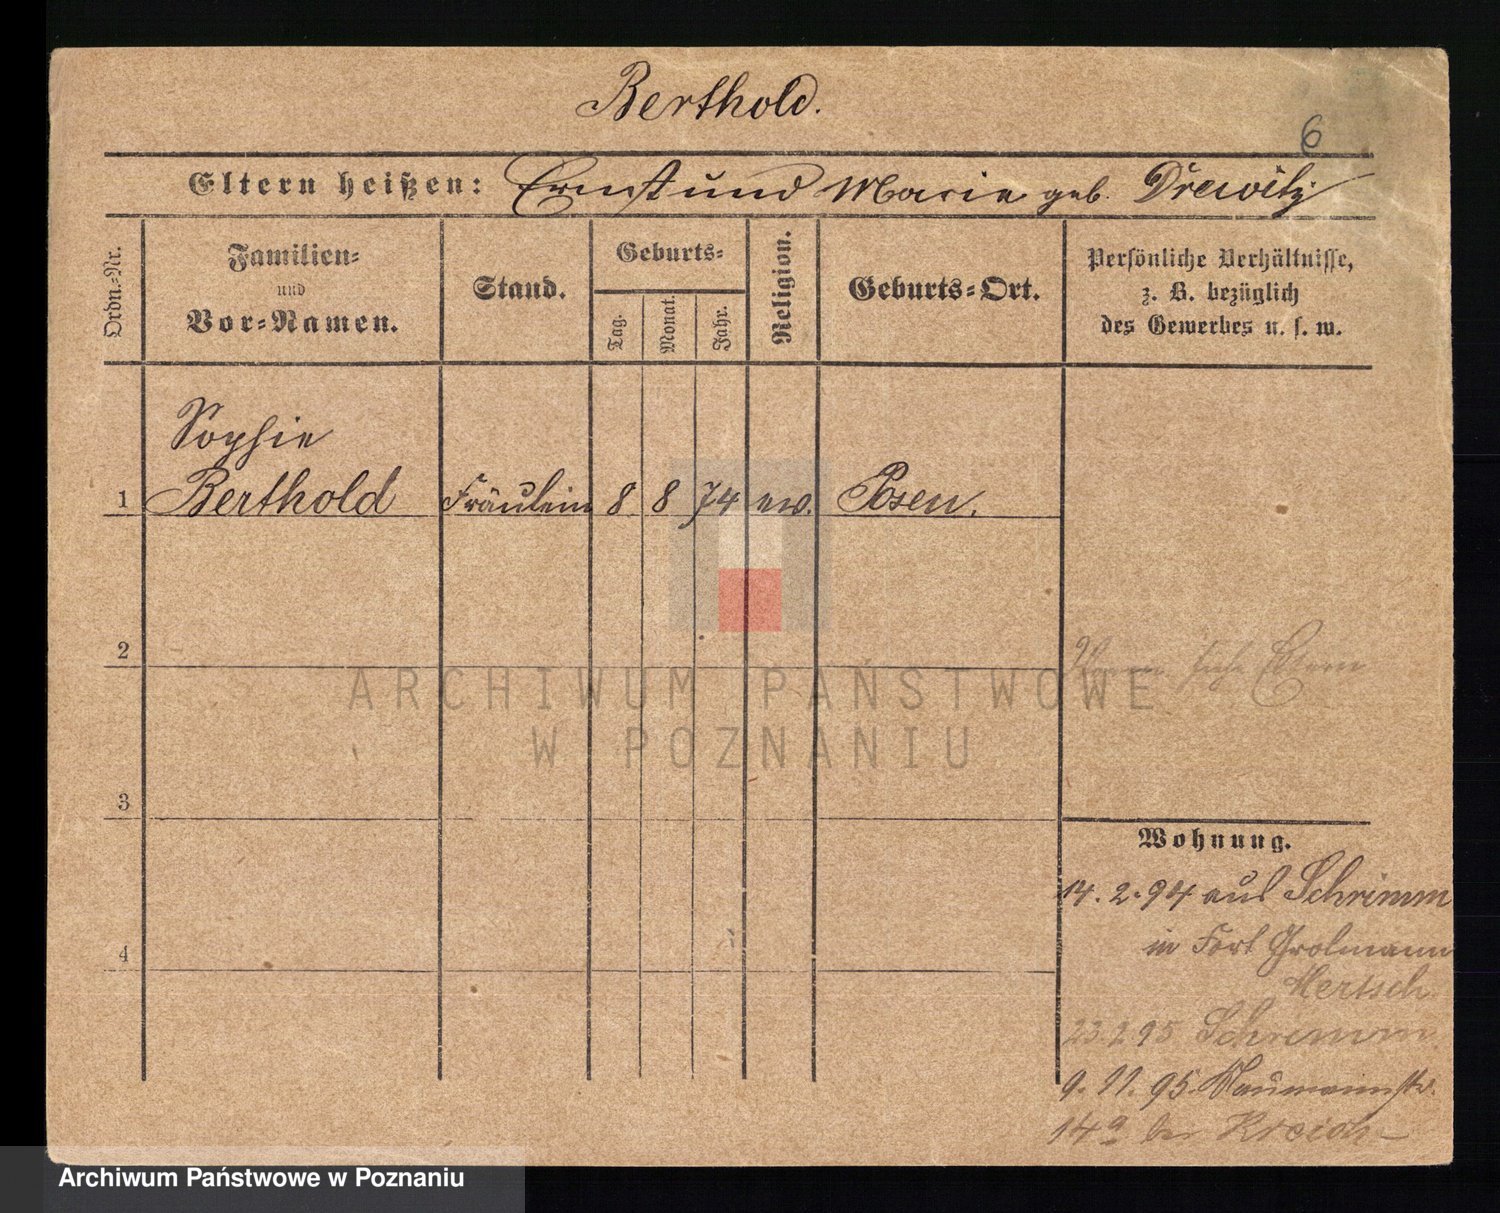 Berthold.
6
Eltern heißen: Ernst und Marie geb. Drewitz
Ordn.-Nr.
Familien-
und
Vor-Namen.
Stand.
Geburts-
Tag.
Monat.
Jahr.
Religion.
Geburts-Ort.
Persönliche Verhältnisse,
z. B. bezüglich
des Gewerbes u. s. w.
Sophie
1 Berthold Fräulein 8 8 74 ev. Posen.
2
siehe Eltern
3
4
Wohnung.
14. 2. 94 aus Schrimm
in Fort Grolmann
Mertsch.
23.2.95 Schrimm.
9. 11. 95. Naumannstr.
14a bei
ARCHIWUM PAŃSTWOWE
W POZNANIU
Archiwum Państwowe w Poznaniu